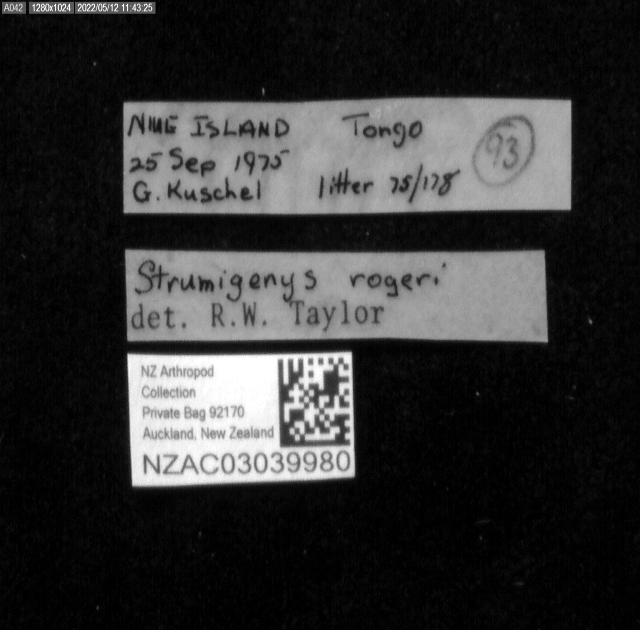 A042 1280x1024 2022/05/12 11:43:25
NIUE ISLAND Tongo 93
25 Sep 1975
G. Kuschel litter 75/178
Strumigenys rogeri
det. R.W. Taylor
NZ Arthropod
Collection
Private Bag 92170
Auckland, New Zealand
NZAC03039980